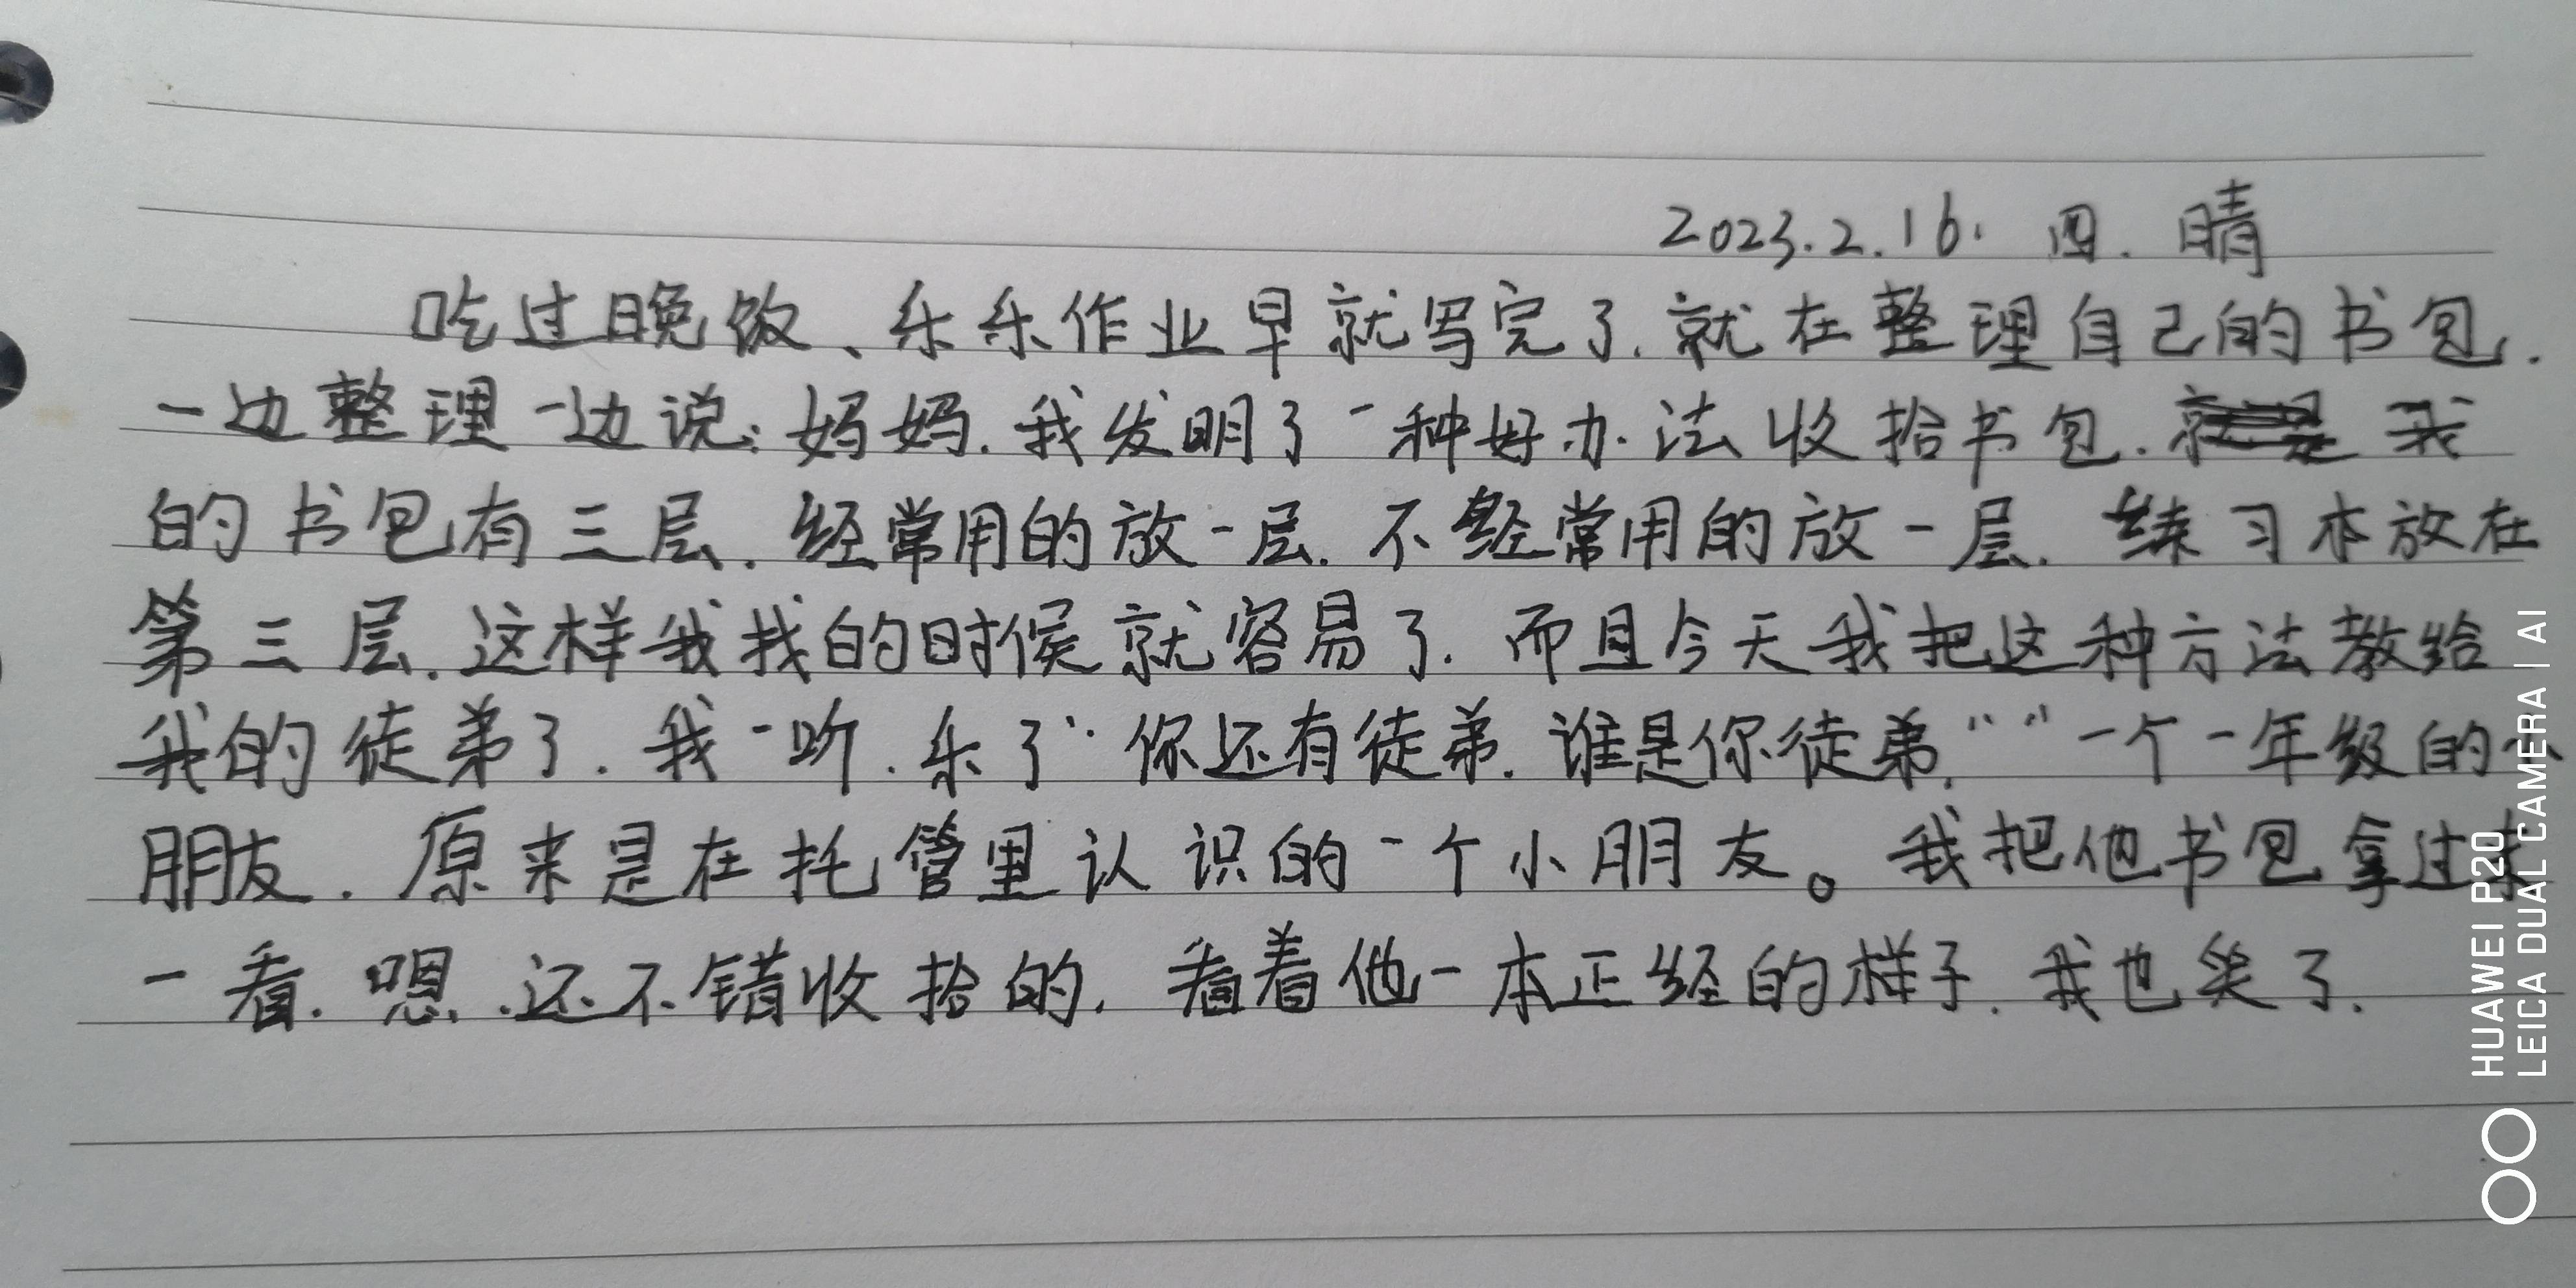 2023.2.16. 四. 晴
吃过晚饭、乐乐作业早就写完了.就在整理自己的书包.
一边整理一边说:妈妈.我发明了一种好办法收拾书包.我
的书包有三层.经常用的放一层.不经常用的放一层.练习本放在
第三层.这样我找的时候就容易了.而且今天我把这种方法教给
我的徒弟了.我一听.乐了“你还有徒弟.谁是你徒弟.”“一个一年级的小
朋友.原来是在托管里认识的一个小朋友。我把他书包拿过来
一看.嗯.还不错收拾的.看着他一本正经的样子.我也笑了.
HUAWEI P20
LEICA DUAL CAMERA | AI